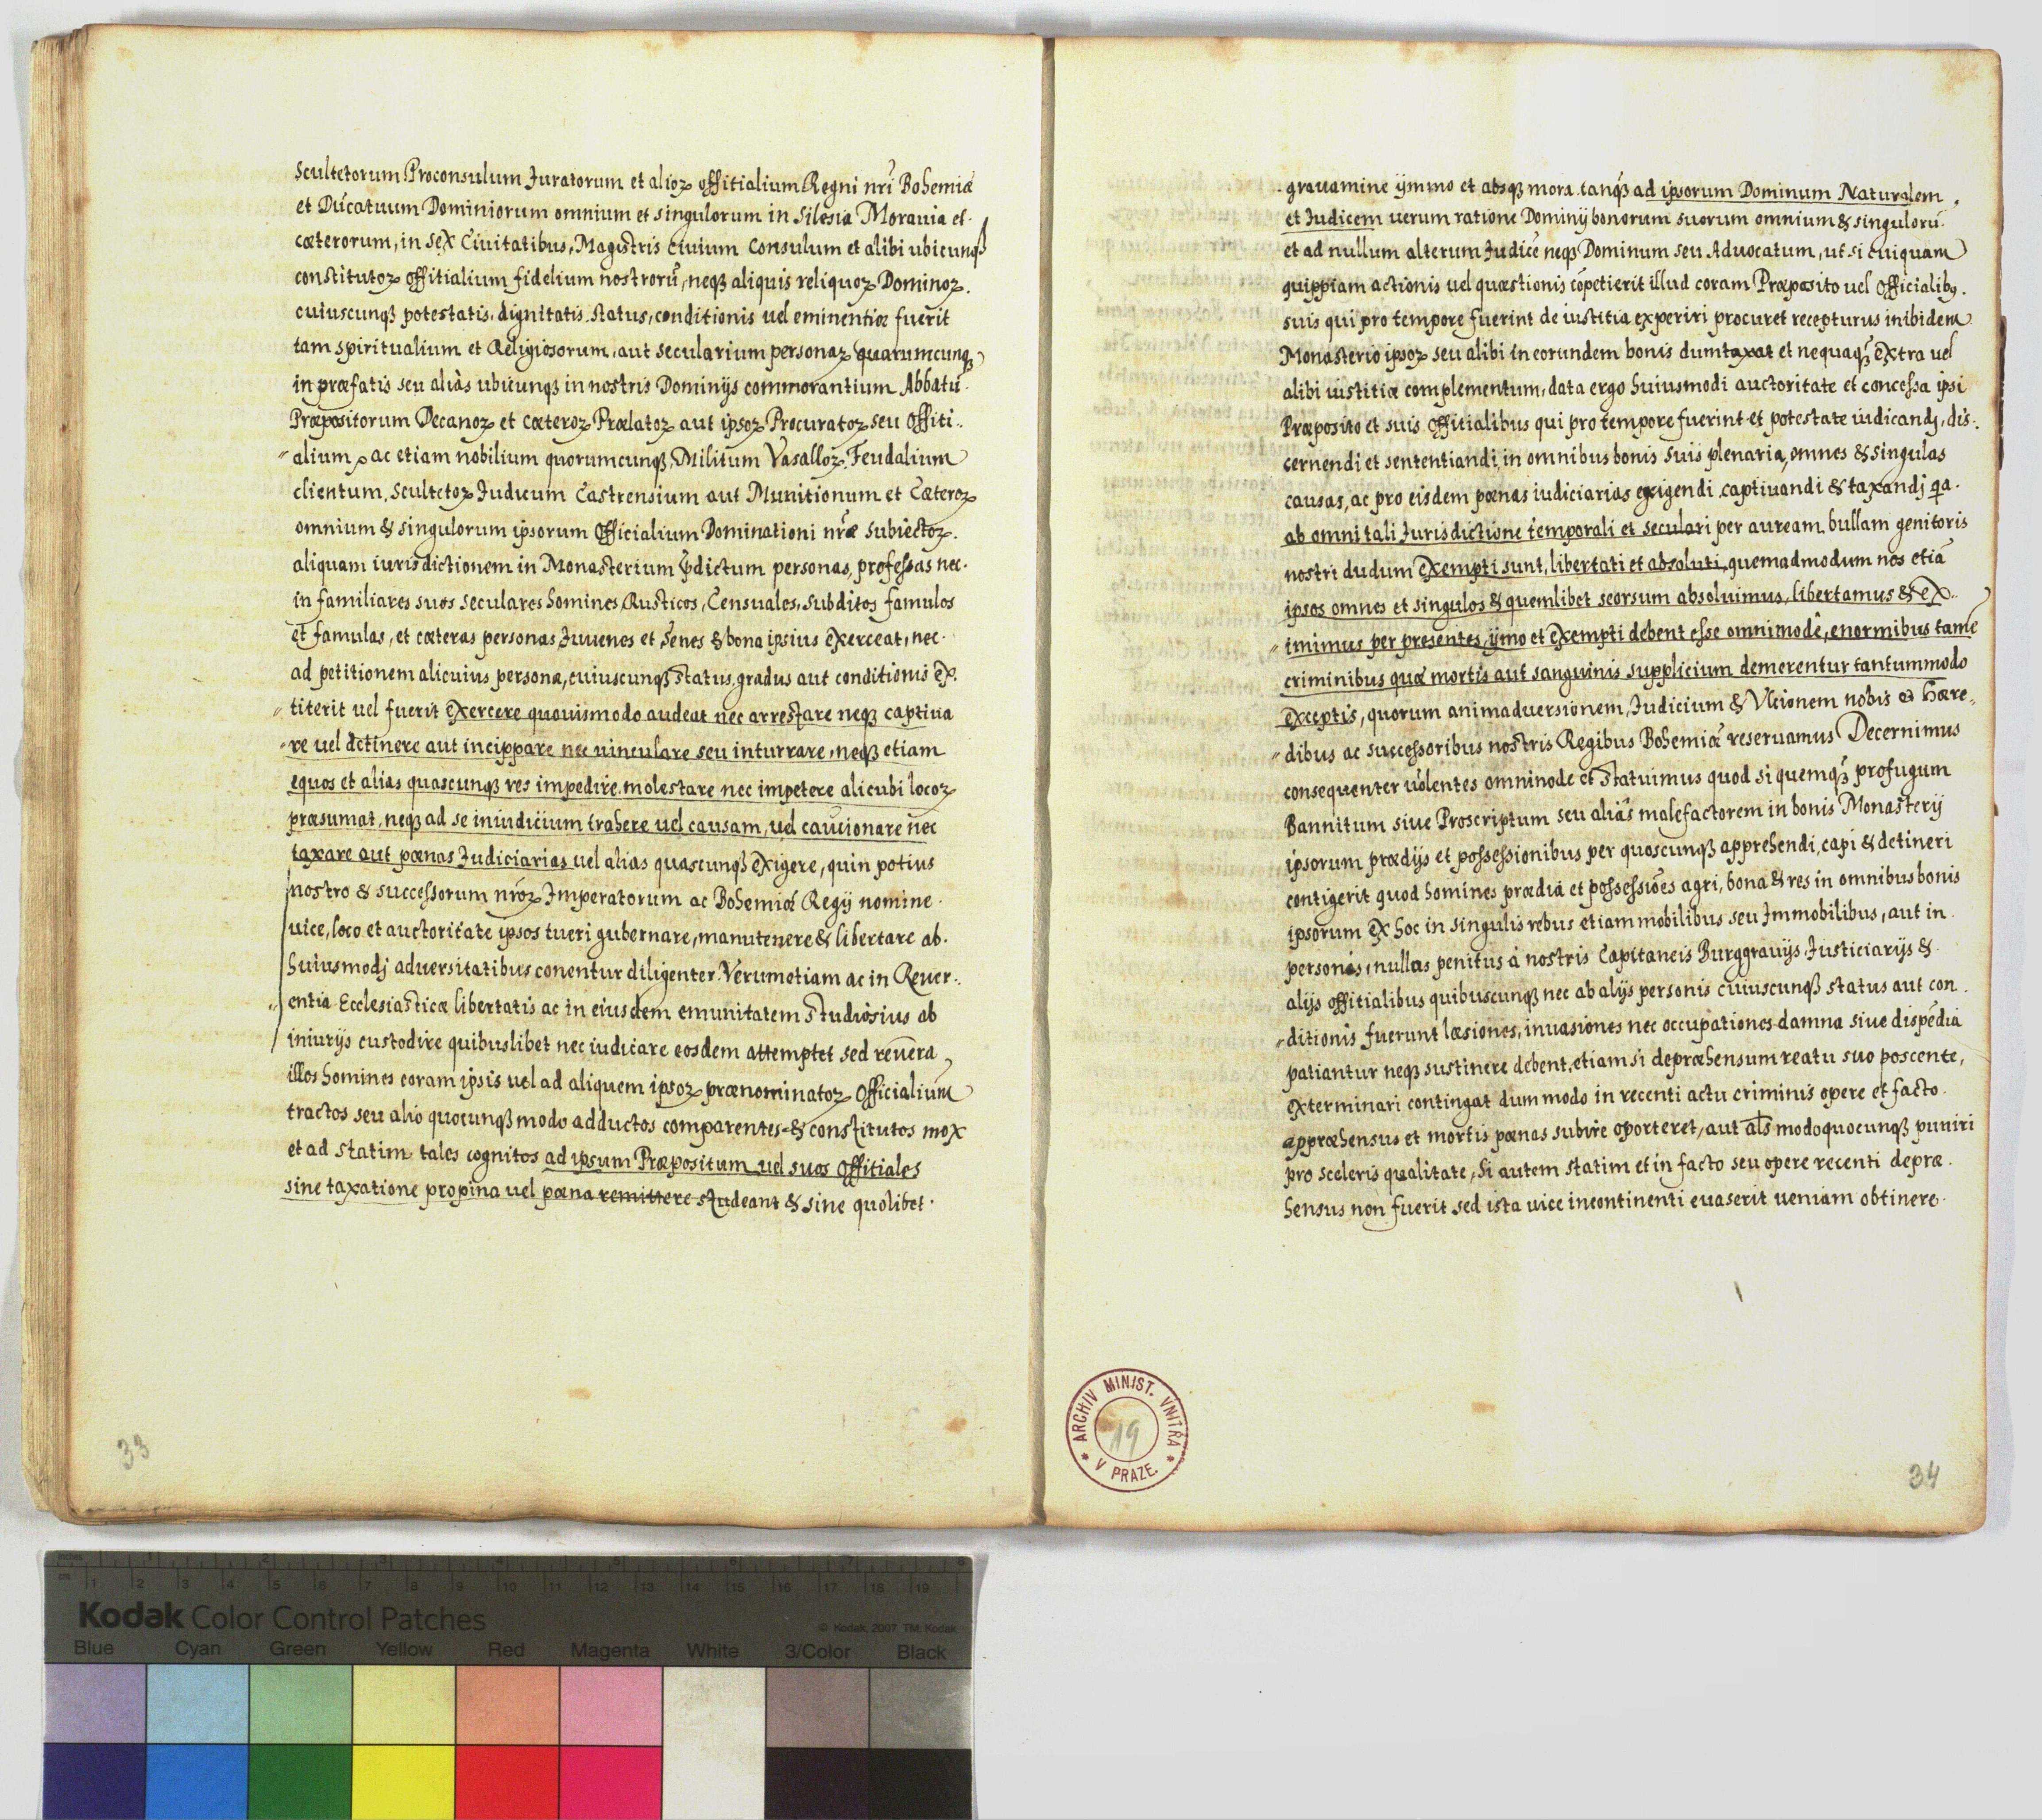 Scultetorum Proconsulum Juratorum et alioꝝ offitialium Regni nrĩ Bohemiæ
et Ducatuum Dominiorum omnium et singulorum in Silesia Morauia et
cæterorum, in sex Ciuitatibus, Magistris ciuium Consulum et alibi ubicunqꝫ
constitutoꝝ offitialium fidelium nostrorũ, neqꝫ aliquis reliquoꝝ Dominoꝝ.
cuiuscunqꝫ potestatis, dignitatis, status, conditionis uel eminentiæ fuerit
tam spiritualium et Religiosorum, aut secularium personaꝝ quarumcunqꝫ
in præfatis seu aliàs ubicunqꝫ in nostris Dominijs commorantium Abbatũ
Præpositorum Decanoꝝ et Cæteroꝝ Prælatoꝝ aut ipsoꝝ Procuratoꝝ seu Offiti..
alium, ac etiam nobilium quorumcunqꝫ, Militum Vasalloꝝ, Feudalium
clientum, Scultetoꝝ Judicum Castrensium aut Munitionum et Cæteroꝝ
omnium & singulorum ipsorum Officialium Dominationi nr̃æ subiectoꝝ.
aliquam iurisdictionem in Monasterium p̃dictum personas, professas nec.
in familiares suos seculares homines, Rusticos, Censuales, subditos famulos
et famulas, et cæteras personas Juuenes et senes & bona ipsius Exerceat, nec.
ad petitionem alicuius personæ, cuiuscunqꝫ status, gradus aut conditionis Ex.
titerit uel fuerit Exercere quouismodo audeat nec arrestare neqꝫ captiua
re uel detinere aut incippare nec uinculare seu inturrare, neqꝫ etiam
equos et alias quascunqꝫ res impedire, molestare nec impetere alicubi locoꝝ
præsumat, neqꝫ ad se in iudicium trahere uel causam, uel caucionare nec
taxare aut pœnas Judiciarias uel alias quascunqꝫ Exigere, quin potius
nostro & successorum nr̃oꝝ Imperatorum ac Bohemiæ Regij nomine.
uice, loco et auctoritate ipsos tueri gubernare, manutenere & libertare ab.
huiusmodj aduersitatibus conentur diligenter. Verumetiam ac in Reuer..
entia Ecclesiasticæ libertatis ac in eiusdem emunitatem studiosius ab
iniurijs custodire quibuslibet nec iudicare eosdem attemptet sed reuera,
illos homines coram ipsis uel ad aliquem ipsoꝝ prænominatoꝝ Officialium
tractos seu alio quocunqꝫ modo adductos comparentes & constitutos mox
et ad statim tales cognitos ad ipsum Præpositum uel suos Offitiales
sine taxatione propina uel pœna remittere studeant & sine quolibet.
33
grauamine ymmo et absqꝫ mora tanqꝫ ad ipsorum Dominum Naturalem,
et Judicem uerum ratione Dominij bonorum suorum omnium & singulorũ
et ad nullum alterum Judicẽ neqꝫ Dominum seu Aduocatum, ut si cuiquam
quippiam actionis uel quæstionis cõpetierit illud coram Præposito uel Officialibꝫ.
suis qui pro tempore fuerint de iustitia experiri procuret recepturus inibidem
Monasterio ipsoꝝ seu alibi in eorundem bonis dumtaxat et nequaqꝫ Extra uel
alibi iustitiæ complementum, data ergo huiusmodi auctoritate et concessa ipsi
Præposito et suis Offitialibus qui pro tempore fuerint et potestate iudicandj, dis.
cernendi et sententiandi in omnibus bonis suis plenaria, omnes & singulas
causas, ac pro eisdem pœnas iudiciarias exigendi captiuandi & taxandj qa.
ab omni tali Jurisdictione temporali et seculari per auream bullam genitoris
nostri dudum Exempti sunt, libertati et absoluti, quemadmodum nos etiã
ipsos omnes et singulos & quemlibet seorsum absoluimus, libertamus & Ex..
imimus per presentes, ymo et Exempti debent esse omnimode, enormibus tamẽ
criminibus quæ mortis aut sanguinis supplicium demerentur tantummodo
Exceptis, quorum animaduersionem, Judicium & Vlcionem nobis et Hære..
dibus ac successoribus nostris Regibus Bohemiæ reseruamus Decernimus
consequenter uolentes omninode et statuimus quod si quemqꝫ profugum
Bannitum siue Proscriptum seu aliàs malefactorem in bonis Monasterij
ipsorum prædijs et possessionibus per quoscunqꝫ apprehendi, capi & detineri
contigerit quod homines prædia et possessiões agri, bona & res in omnibus bonis
ipsorum Ex hoc in singulis rebus etiam mobilibus seu Immobilibus, aut in
personis, nullas penitus à nostris Capitaneis Burggrauijs Justiciarijs &
alijs offitialibus quibuscunqꝫ nec ab alijs personis cuiuscunqꝫ status aut con.
ditionis fuerunt læsiones, inuasiones nec occupationes damna siue dispẽdia
patiantur neqꝫ sustinere debent, etiam si depræhensum reatu suo poscente,
exterminari contingat dummodo in recenti actu criminis opere et facto.
appræhensus et mortis pœnas subire oporteret, aut al̃s modoquocunqꝫ puniri
pro sceleris qualitate, Si autem statim et in facto seu opere recenti depræ.
hensus non fuerit sed ista uice incontinenti euaserit ueniam obtinere.
ARCHIV MINIST. VNITRA V PRAZE.
19
34
Kodak Color Control Patches
© Kodak, 2007 TM: Kodak
Blue Cyan Green Yellow Red Magenta White 3/Color Black